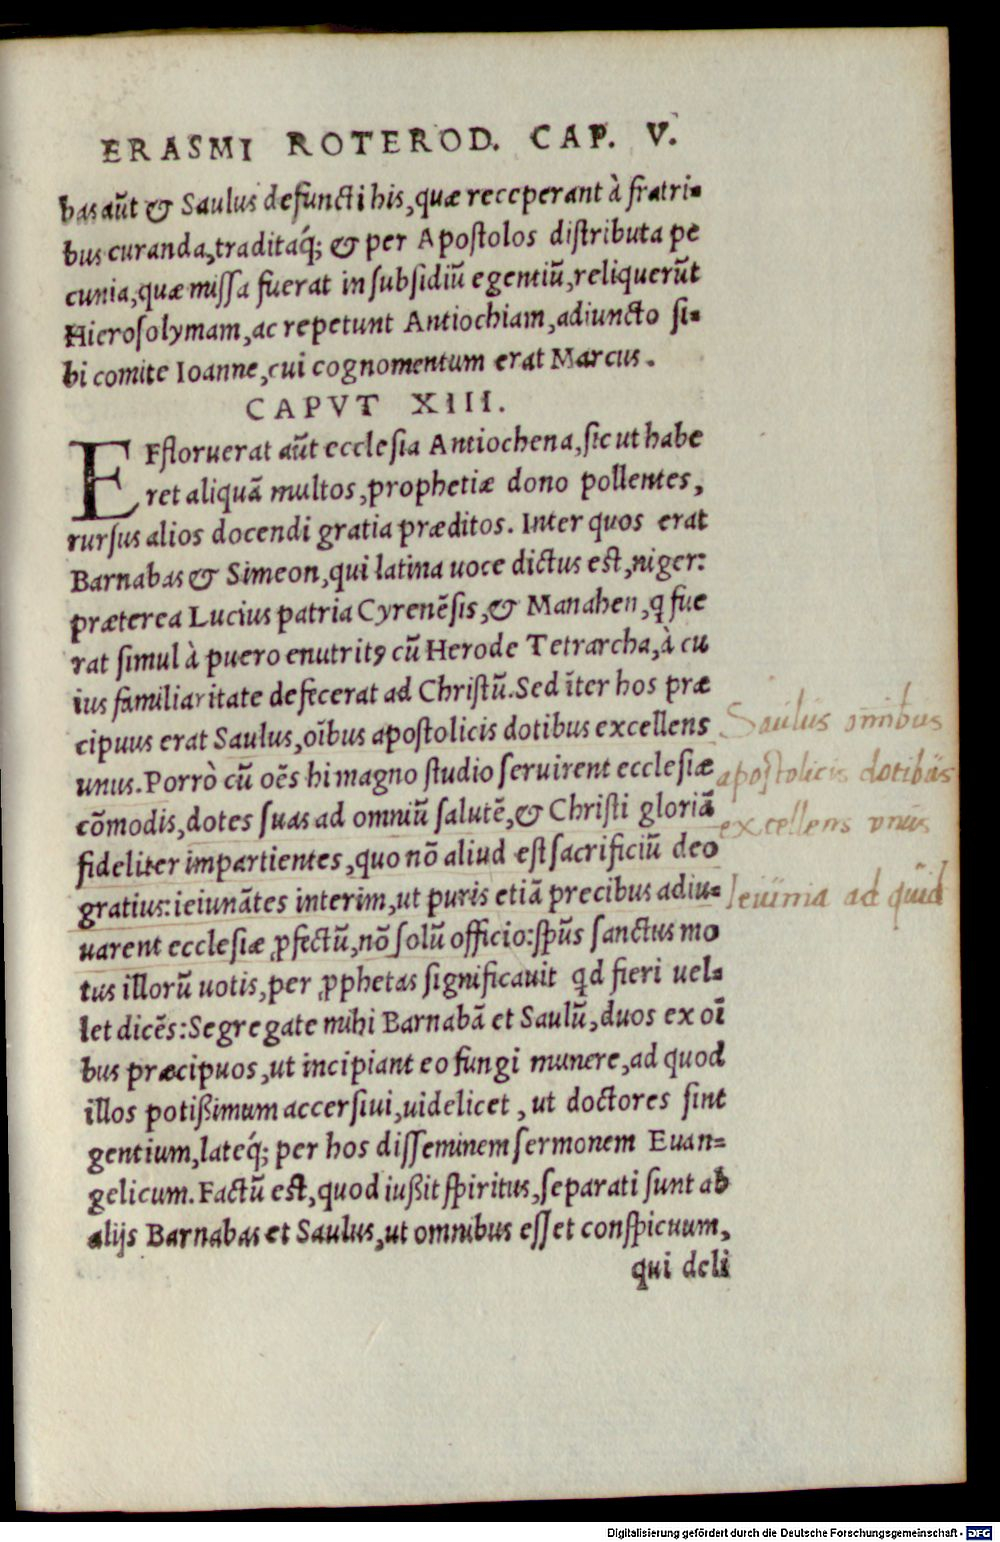 ERASMI ROTEROD. CAP. V.
bas aūt & Saulus defuncti his, quæ receperant à fratri-
bus curanda, traditaq́;  & per Apostolos distributa pe
cunia, quæ missa fuerat in subsidiū egentiū, reliquerūt
Hierosolymam, ac repetunt Antiochiam, adiuncto si-
bi comite Ioanne, cui cognomentum erat Marcus.
CAPVT XIII.
EFfloruerat aūt ecclesia Antiochena, sic ut habe
ret aliquā multos, prophetiæ dono pollentes,
rursus alios docendi gratia præditos. Inter quos erat
Barnabas & Simeon, qui latina uoce dictus est, niger:
præterea Lucius patria Cyrenēsis, & Manahen, q̨ fue
rat simul à puero enutritꝰ cū Herode Tetrarcha, à cu
ius familiaritate defecerat ad Christū. Sed īter hos præ
cipuus erat Saulus, oībus apostolicis dotibus excellens
unus. Porrò cū oēs hi magno studio seruirent ecclesiæ
cōmodis, dotes suas ad omniū salutē, & Christi gloriā
fideliter impartientes, quo nō aliud est sacrificiū deo
gratius: ieiunātes interim, ut puris etiā precibus adiu-
uarent ecclesiæ ꝓfectū, nō solū officio: sp̄us sanctus mo
tus illorū uotis, per ꝓphetas significauit qd fieri uel-
let dicēs: Segregate mihi Barnabā et Saulū, duos ex oī
bus præcipuos, ut incipiant eo fungi munere, ad quod
illos potißimum accersiui, uidelicet, ut doctores sint
gentium, lateq́; per hos disseminem sermonem Euan-
gelicum. Factū est, quod iußit spiritus, separati sunt ab
alijs Barnabas et Saulus, ut omnibus esset conspicuum,
qui deli
Saulus om̄ibus
apostolicis dotibus
excellens vnus
Ieiunia ad quid
Digitalisierung gefördert durch die Deutsche Forschungsgemeinschaft - DFG